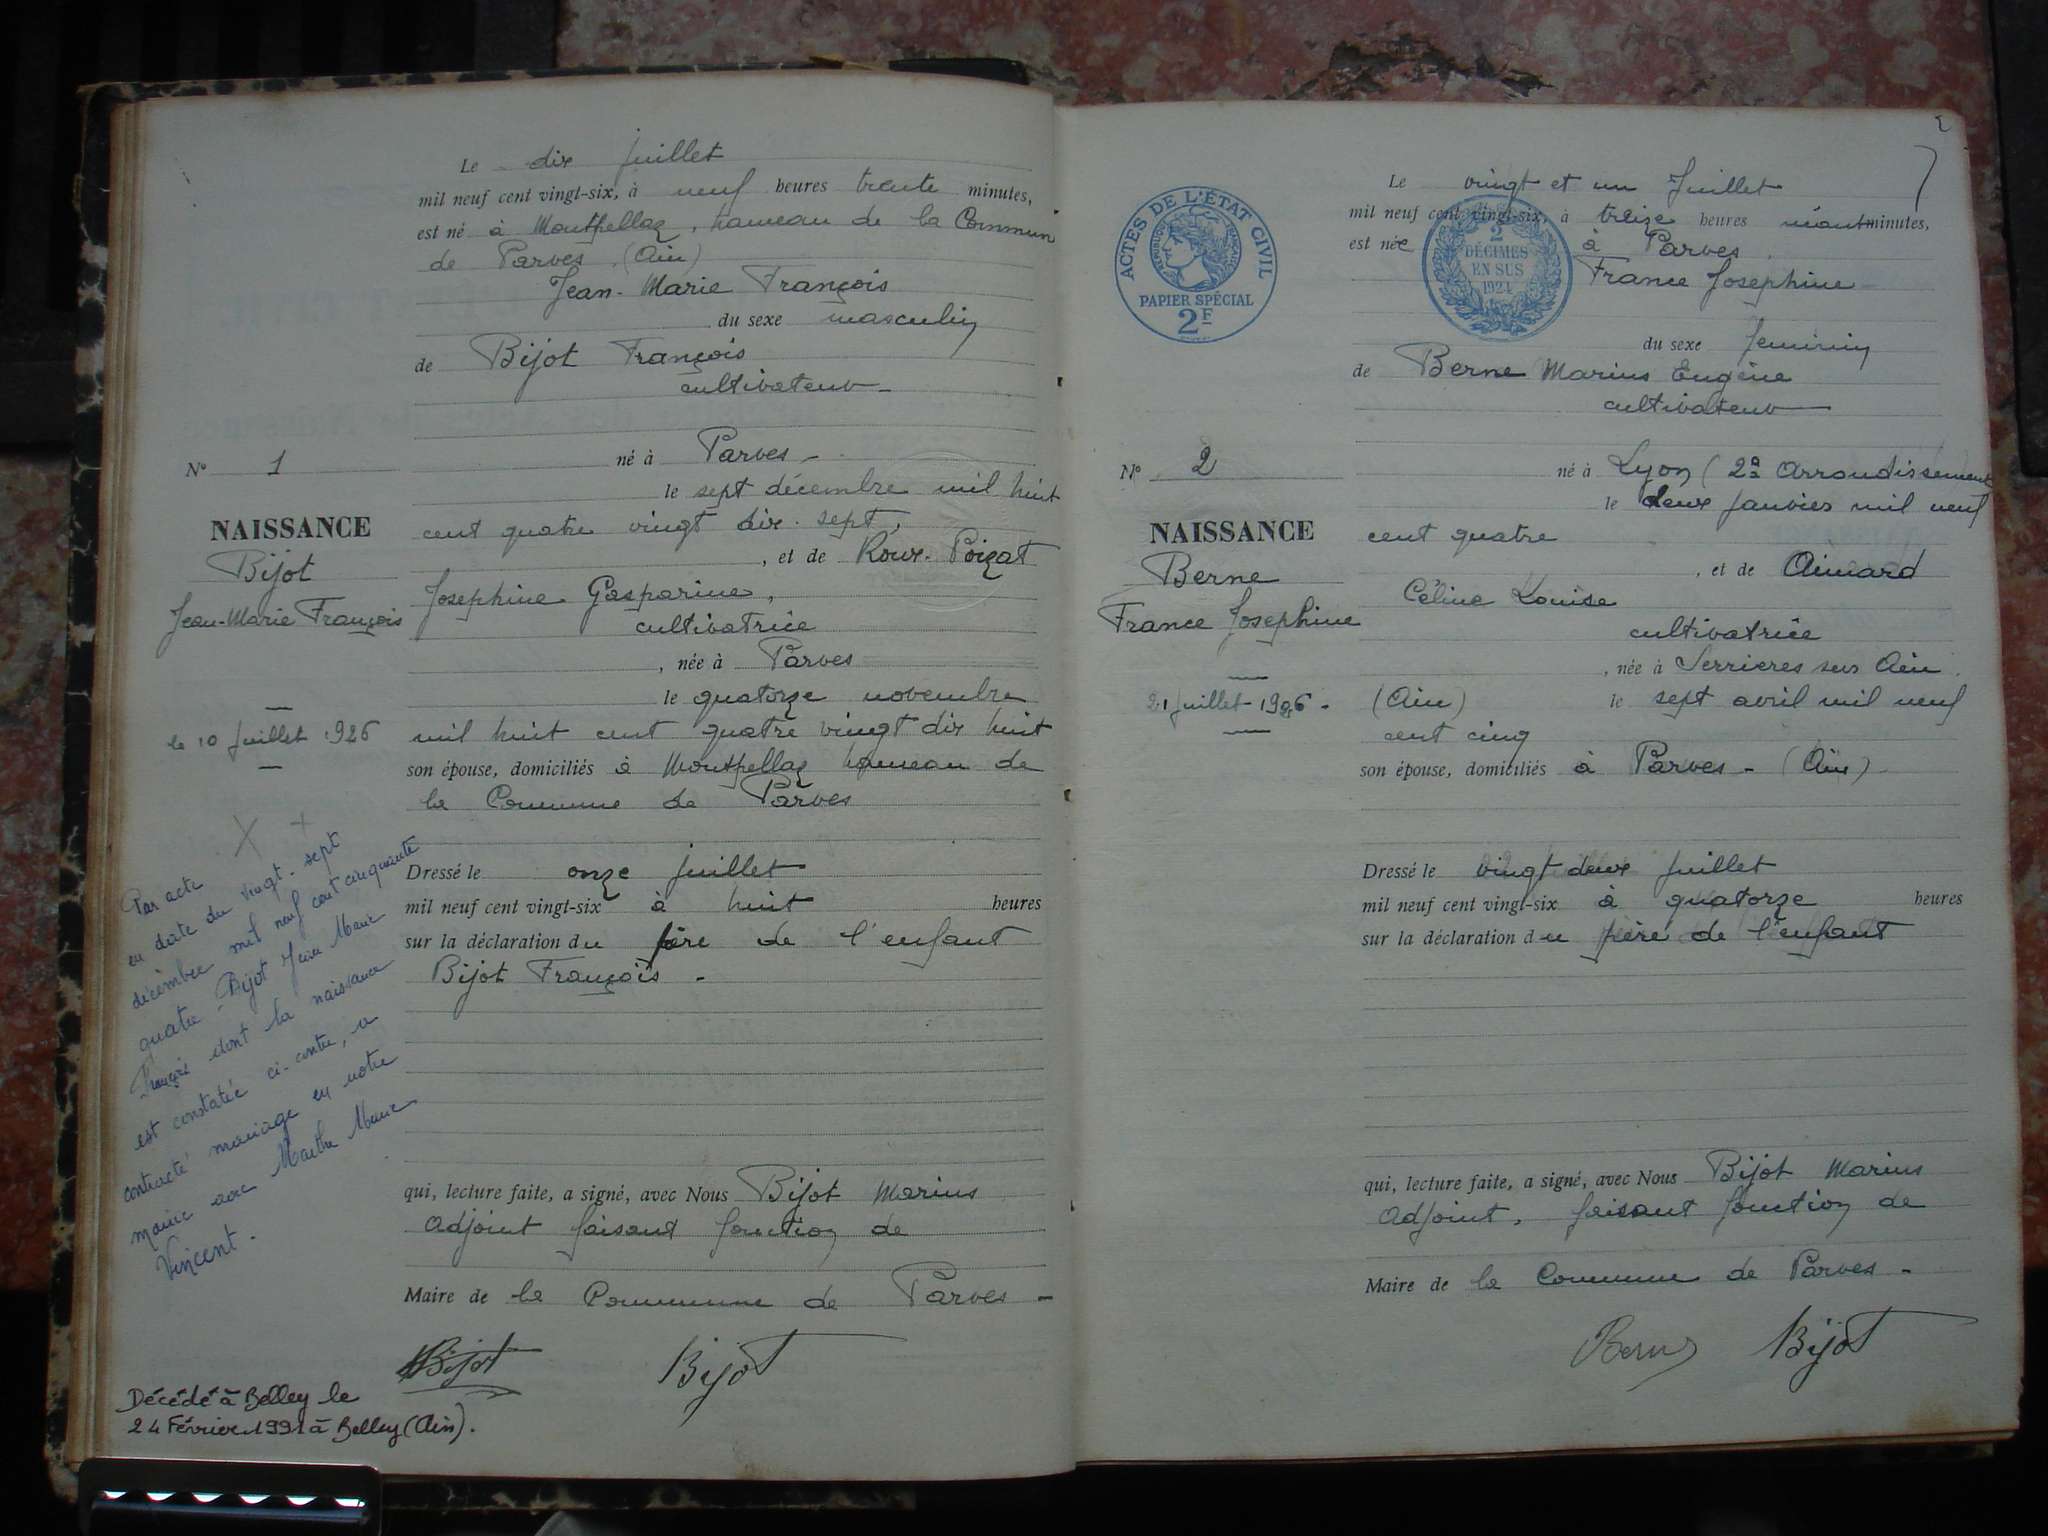 Le dix juillet
mil neuf cent vingt-six, à neuf heures trente minutes,
est né à Montpellaz, hameau de la Commun
de Parves (Ain)
Jean-Marie François
du sexe masculin
de Bijot François
cultivateur
N° 1
né à Parves
le sept décembre mil huit
NAISSANCE
cent quatre vingt dix-sept,
Bijot
, et de Roux-Poizat
Jean-Marie François
Josephine Gasparine,
cultivatrice
, née à Parves
le quatorze novembre
le 10 Juillet 1926
mil huit cent quatre vingt dix huit
son épouse, domiciliés à Montpellaz hameau de
la Commune de Parves
Dressé le onze juillet
mil neuf cent vingt-six à huit heures
sur la déclaration du père de l'enfant
Bijot François -
Par acte
en date du vingt-sept
décembre mil neuf cent cinquante
quatre, Bijot Jean Marie
François dont la naissance
est constatée ci-contre, a
contracté mariage en notre
mairie avec Marthe Marie
Vincent.
qui, lecture faite, a signé, avec Nous Bijot Marius
Adjoint faisant fonction de
Maire de la Commune de Parves -
Bijot Bijot
Décédé à Belley le
24 Février 1991 à Belley (Ain).
2
Le vingt et un Juillet
mil neuf cent vingt-six, à treize heures néant minutes,
est née à Parves
France Josephine
ACTES DE L'ÉTAT CIVIL
RÉPUBLIQUE FRANÇAISE
PAPIER SPÉCIAL
2F
2
DÉCIMES
EN SUS
1924
du sexe feminin
de Berne Marius Eugène
cultivateur
N° 2
né à Lyon (2e Arrondissement
le deux Janvier mil neuf
NAISSANCE
cent quatre
Berne
, et de Aimard
France Josephine
Céline Louise
cultivatrice
, née à Serrieres sur Ain
21 juillet 1926 -
(Ain) le sept avril mil neuf
cent cinq
son épouse, domiciliés à Parves - (Ain)
Dressé le vingt deux juillet
mil neuf cent vingt-six à quatorze heures
sur la déclaration du père de l'enfant
qui, lecture faite, a signé, avec Nous Bijot Marius
Adjoint, faisant fonction de
Maire de la Commune de Parves -
Berne Bijot